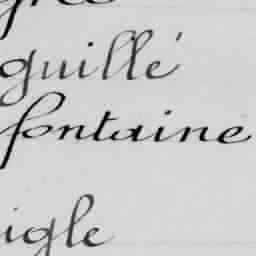 guillé
fontaine
igle